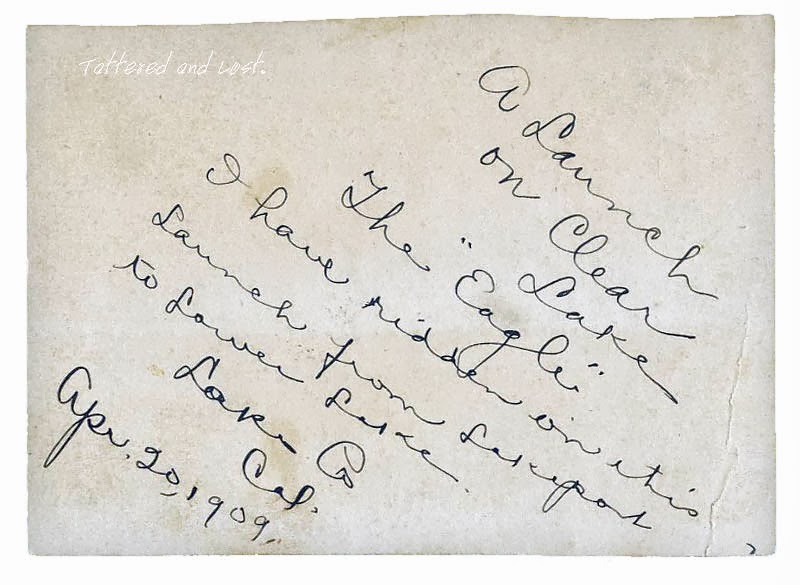 Tattered and Lost.
A Launch
on Clear
Lake
The "Eagle"
I have ridden in this
Launch from Lakeport
to Lower Lake.
Lake Co
Cal.
Apr. 20, 1909.